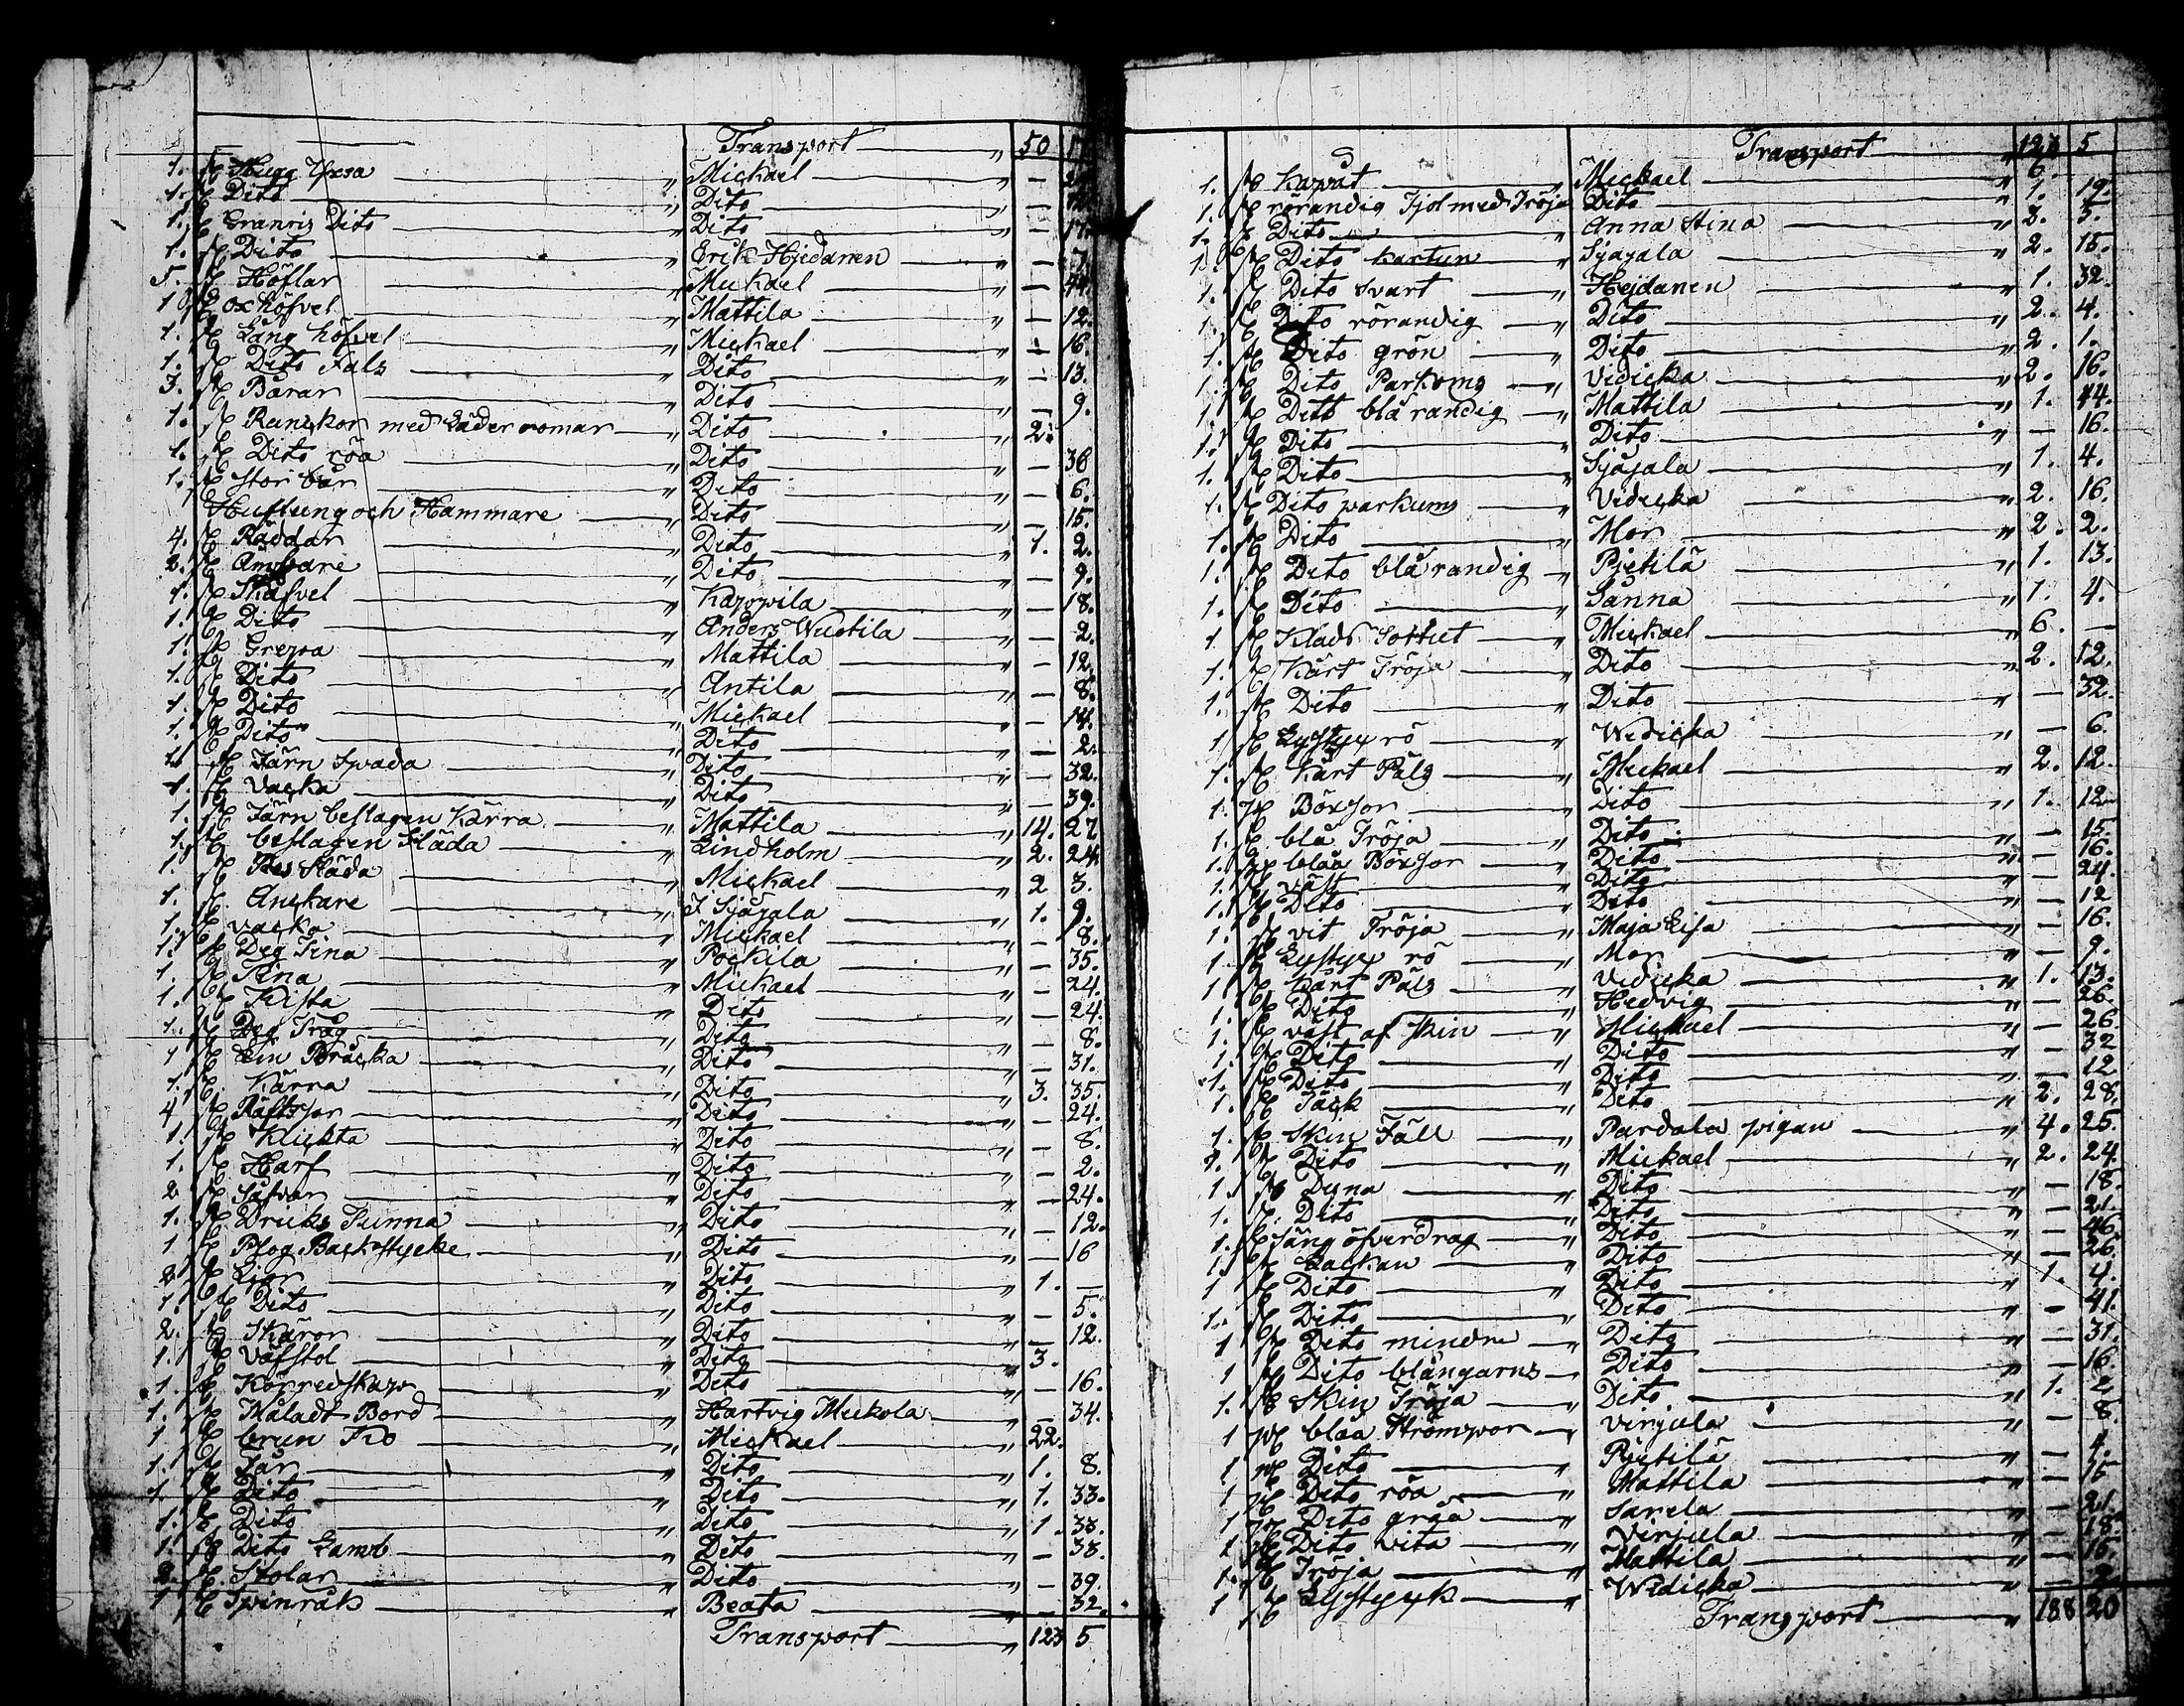 Transport „ 50
1. st Hugg Yxsa „ Mickael „ —
1. st Dito „ Dito „ —
1. st Granris Dito „ Dito „ — 17.
1. st Dito „ Erik Hejdanen „ — 7.
5. st Höflar „ Mickael „ — 44.
1 st ox höfvel „ Mattila „ — 12.
1. st Lång höfvel „ Mickael „ — 16.
1. st Dito Fals „ Dito „ — 13.
3. st Bårar „ Dito „ — 9.
1. st Ranckor med Läder romar „ Dito „ 2.
1. st Dito röa „ Dito „ — 36
1. st stor bår „ Dito „ — 6.
Huftung och Hammare „ Dito „ — 15.
4. st Räddar „ Dito „ 1. 2.
2. st Ämbare „ Dito „ — 9.
1. st Skåfvel „ Kappila „ — 18.
1. st Dito „ Anders Wuotila „ — 2.
1. st Grepa „ Mattila „ — 12.
1. st Dito „ Antila „ — 8.
1. st Dito „ Mickael „ — 14.
1. st Dito „ Dito „ — 2.
1. st Järn Spada „ Dito „ — 32.
1. st Vacka „ Dito „ — 39.
1. st Järn beslagen Kärra „ Mattila „ 14. 27
1. st beslagen Släda „ Lindholm „ 2. 24.
1. st Res Släda „ Mickael „ 2 3.
1. st Anckare „ J Sjäjala „ 1. 9.
1. st Vacka „ Mickael „ — 8.
1. st Deg Tina „ Pockila „ — 35.
1. st Tina „ Mickael „ — 24.
1. st Kista „ Dito „ — 24.
1. st Deg Tråg „ Dito „ — 8.
1 st Lin Bräcka „ Dito „ — 31.
1. st Kärra „ Dito „ 3. 35.
4 st Räffsor „ Dito „ — 24.
1. st Klickta „ Dito „ — 8.
1. st Harf „ Dito „ — 2.
2 st Såfvar „ Dito „ — 24.
1. st Dricks Tunna „ Dito „ — 12.
1 st Plog Backstycke „ Dito „ — 16
2 st Liar „ Dito „ 1. —
1. st Dito „ Dito „ — 5.
2. st Skäror „ Dito „ — 12.
1. st Väfstol „ Dito „ 3.
1. st Körredskap „ Dito „ — 16.
1. st Måladt Bord „ Hartvig Mickola „ — 34.
1 st brun Ko „ Mickael „ 22.
1. st Får „ Dito „ 1. 8.
1 st Dito „ Dito „ 1. 33.
1. st Dito „ Dito „ 1. 33.
1. st Dito Lamb „ Dito „ — 38.
2. st Stolar „ Dito „ — 39.
1 st Spinråk „ Beata „ — 32.
Transport „ 123 5
Transport „ 123 5
1. st Kapåt „ Mickael „ 6.
1. st rörandig Kjol med Tröja Dito „ 1. 19.
1. st Dito „ Anna Stina „ 3. 5.
1. st Dito kartun „ Sjäjala „ 2. 15.
1. st Dito Svart „ Hejdanen „ 1. 32.
1. st Dito rörandig „ Dito „ 2. 4.
1. st Dito grön „ Dito „ 2. 1.
1. st Dito Parkoms „ Vidicka „ 2. 16.
1. st Dito blå randig „ Mattila „ 1. 44.
1. st Dito „ Dito „ — 16.
1. st Dito „ Sjäjala „ 1. 4.
1. st Dito parkums „ Vidicka „ 2. 16.
1. st Dito „ Mor „ 2. 2.
1. st Dito blå randig „ Pjetilä „ 1. 13.
1. st Dito „ Sanna „ 1. 4.
1 st Kläds Sottut „ Mickael „ 6. —
1. st Kärt Tröja „ Dito „ 2. 12.
1. st Dito „ Dito „ — 32.
1 st Lystyx rö „ Widicka „ — 6.
1. st Kärt Päls „ Mickael „ 2. 12.
1. pr Böxsor „ Dito „ 1. 12
1. st blå Tröja „ Dito „ — 15.
1. pr blåa Böxsor „ Dito „ — 16.
1. st väst „ Dito „ — 24.
1. st Dito „ Dito „ — 12
1. st vit Tröja „ Maja Lisa „ — 16.
1 st Lystyx rö „ Mor „ — 9.
1 st kårt Päls „ Vidicka „ 1. 13.
1. st Dito „ Hedvig „ — 26.
1. st väst af skin „ Mickael „ — 26.
1. st Dito „ Dito „ — 32
1. st Dito „ Dito „ — 12
1. st Täck „ Dito „ 2. 28.
1. st Skin Fäll „ Pardala pigan „ 4. 25.
1. st Dito „ Mickael „ 2. 24.
1. st Duna „ Dito „ — 18.
1. st Dito „ Dito „ — 21.
1. st Säng öfverdrag „ Dito „ — 46.
1. st Lackan „ Dito „ — 26.
1 st Dito „ Dito „ 1. 4.
1. st Dito „ Dito „ — 41.
1 st Dito mindre „ Dito „ — 31.
1 st Dito blångarns „ Dito „ — 16.
1. st Skin Tröja „ Dito „ 1. 2.
1 pr blåa Strömpor „ Virjula „ — 8.
1 pr Dito „ Pjetilä „ — 4.
1 pr Dito röa „ Mattila „ — 15
1 pr Dito gråa „ Sarela „ — 21.
1 pr Dito vita „ Virjula „ — 18.
1. st Tröja „ Mattila „ — 15.
1 st Lystyck „ Widicka „ —
Transport „ 188 20